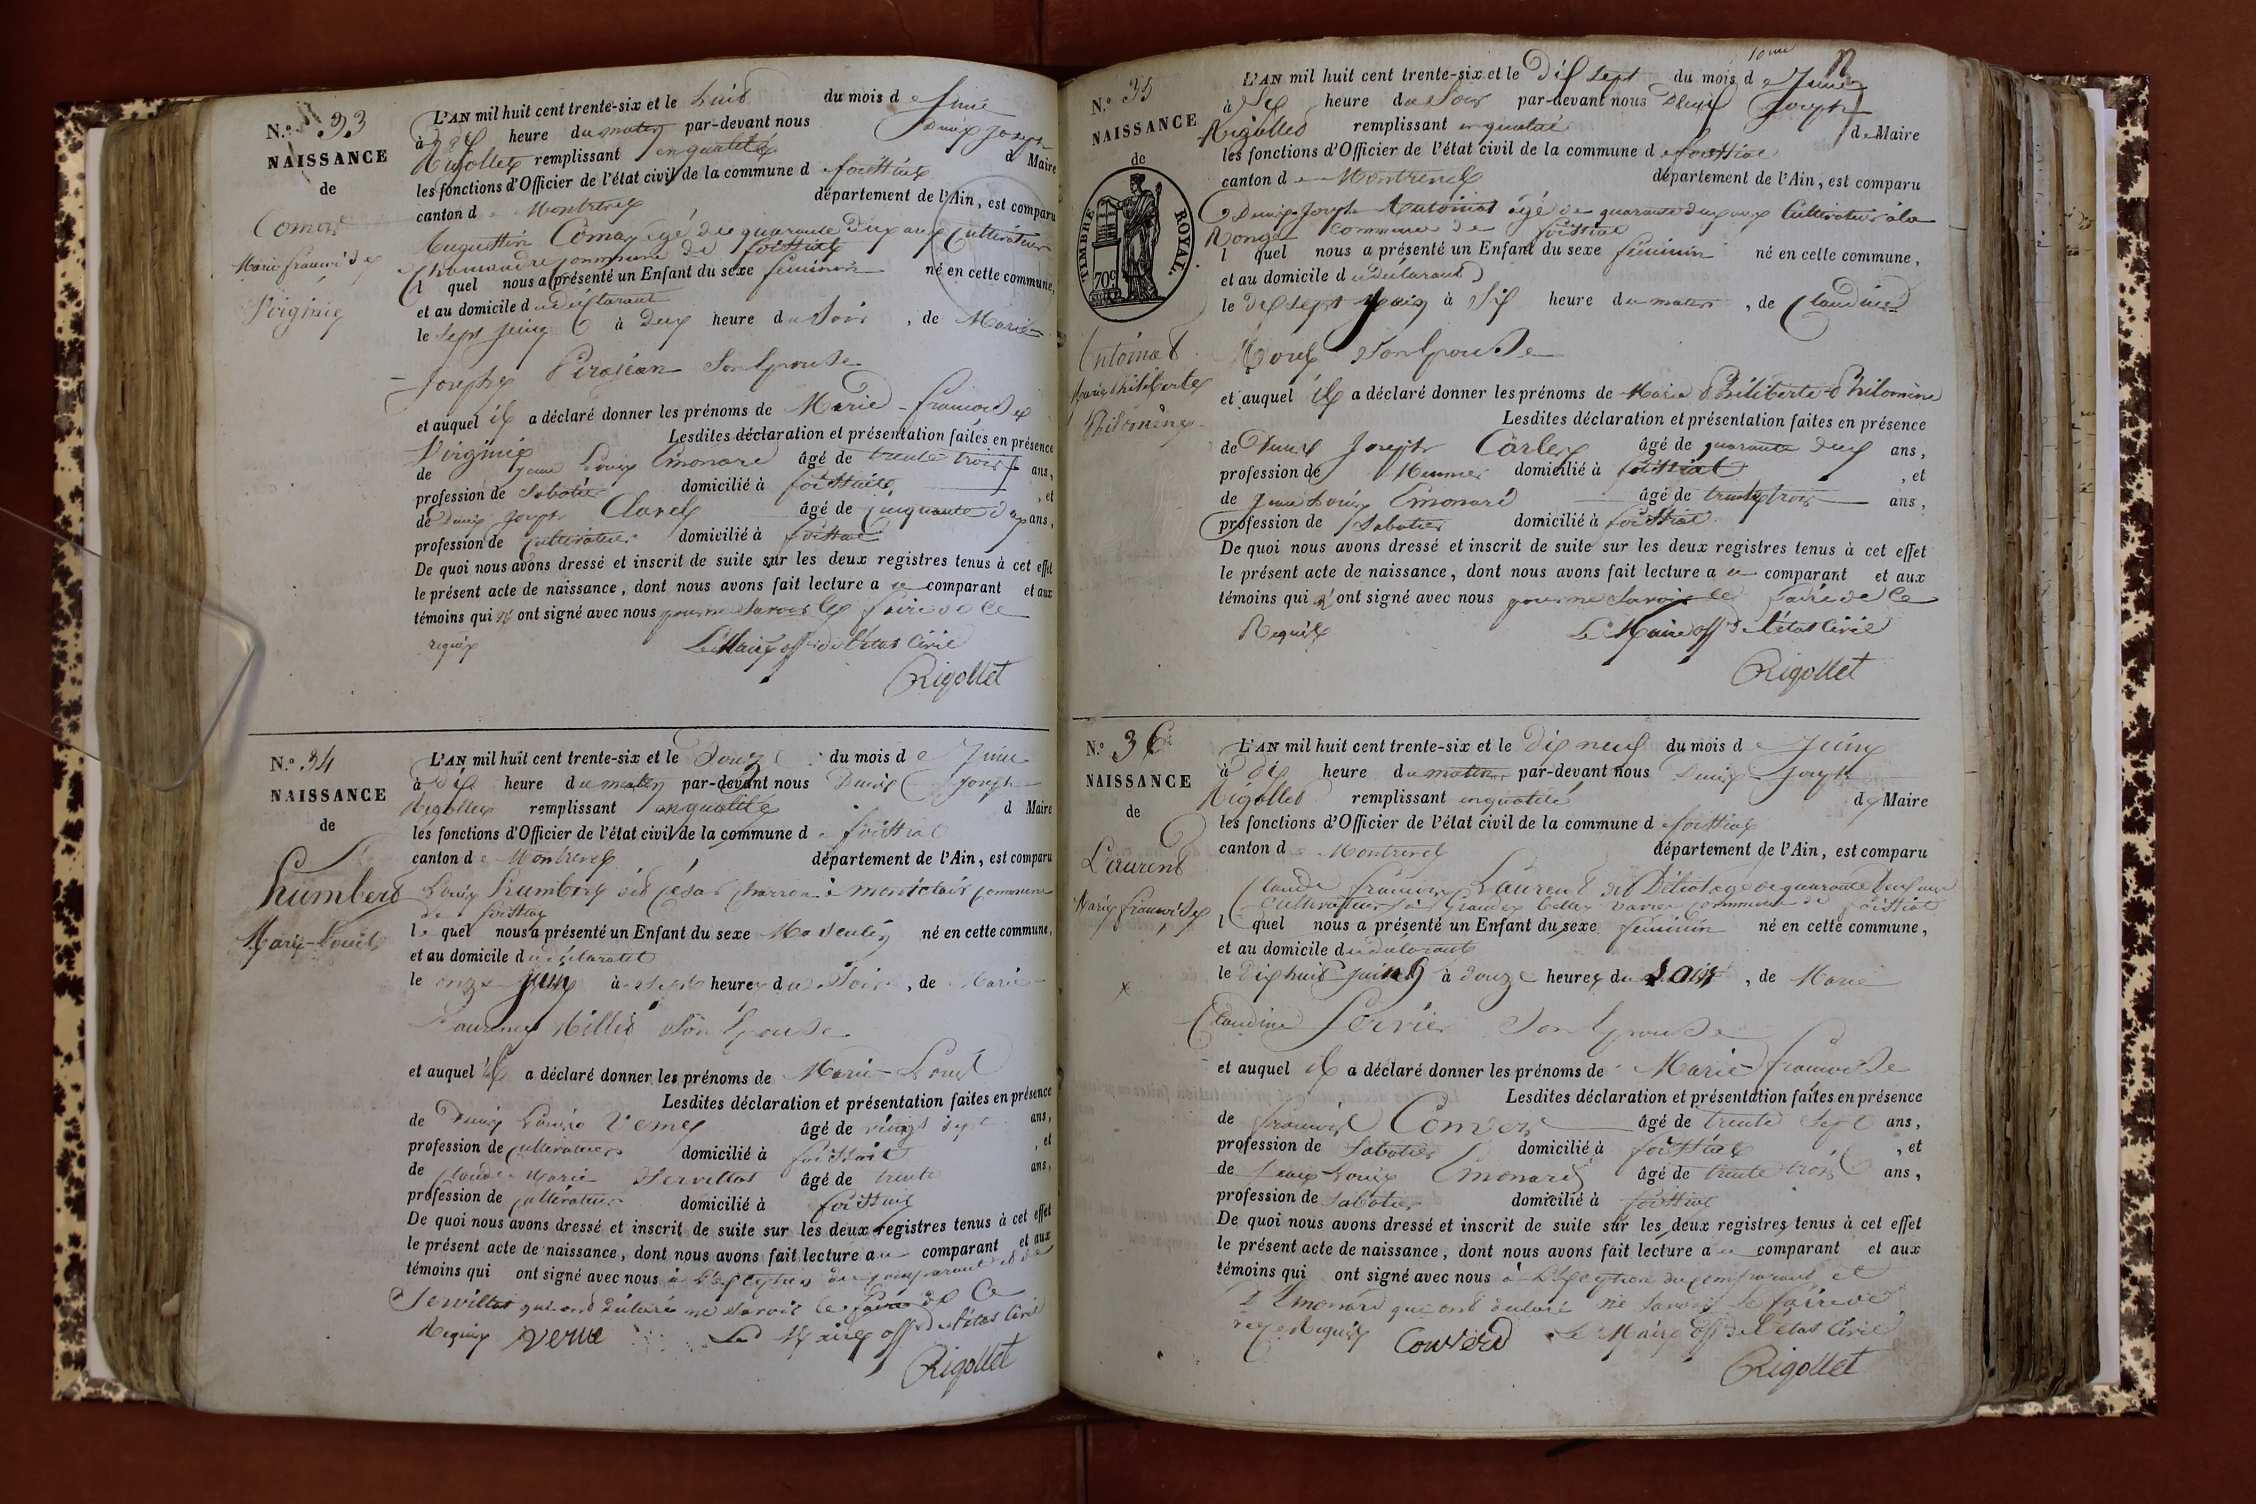 N.o 33
NAISSANCE
de
Comar
Marie françoise
Virginie
L'AN mil huit cent trente-six et le huit du mois de Juin
à dix heure du matin par-devant nous Denis Joseph
Rigollet remplissant en qualité d Maire
les fonctions d'Officier de l'état civil de la commune de foissiat
canton de Montrevel département de l'Ain, est comparu
Augustin Comar agé de quarante deux ans Cultivateur
commune de foissiat
l quel nous a présenté un Enfant du sexe féminin né en cette commune,
et au domicile du déclarant
le sept juin à deux heure du Soir, de Marie
Josephe Perdjean Son Epouse
et auquel il a déclaré donner les prénoms de Marie-françoise
Virginie Lesdites déclaration et présentation faites en présence
de Jean Louis Emonard âgé de trente trois ans,
profession de Sabotier domicilié à foissiat, et
de Denis Joseph Clavel âgé de cinquante ans,
profession de cultivateur domicilié à foissiat
De quoi nous avons dressé et inscrit de suite sur les deux registres tenus à cet effet
le présent acte de naissance, dont nous avons fait lecture au comparant et aux
témoins qui n'ont signé avec nous pour ne Savoir le faire de ce
requis Le Maire off de l'état Civil
Rigollet
N.o 34
NAISSANCE
de
humbert
Marie-Louis
L'AN mil huit cent trente-six et le Douze du mois de Juin
à dix heure du matin par-devant nous Denis Joseph
Rigollet remplissant en qualité d Maire
les fonctions d'Officier de l'état civil de la commune de foissiat
canton de Montrevel département de l'Ain, est comparu
Louis humbert dit César charron à montclair commune
de foissiat
le quel nous a présenté un Enfant du sexe Masculin né en cette commune,
et au domicile du déclarant
le onze juin à sept heures du Soir, de Marie
Laurence Millet Son Epouse
et auquel il a déclaré donner les prénoms de Marie-Louis
Lesdites déclaration et présentation faites en présence
de Denis Verne âgé de vingt sept ans,
profession de cultivateur domicilié à foissiat, et
de Claude Marie Servillat âgé de trente ans,
profession de cultivateur domicilié à foissiat
De quoi nous avons dressé et inscrit de suite sur les deux registres tenus à cet effet
le présent acte de naissance, dont nous avons fait lecture au comparant et aux
témoins qui ont signé avec nous à l'exception du comparant et de
Servillat qui ont déclaré ne Savoir le faire de Ce
Requis Verne Le Maire off de l'état Civil
Rigollet
10me
N.o 35
NAISSANCE
de
TIMBRE ROYAL.
70c
Antoinat
Marie philiberte
Philomène
L'AN mil huit cent trente-six et le Dix sept du mois de Juin
à Six heure du Soir par-devant nous Denis Joseph
Rigollet remplissant en qualité de Maire
les fonctions d'Officier de l'état civil de la commune de foissiat
canton de Montrevel département de l'Ain, est comparu
Denis Joseph Antoinat agé de quarante deux ans Cultivateur à la
Ronge Commune de foissiat
l quel nous a présenté un Enfant du sexe féminin né en cette commune,
et au domicile du déclarant
le dix sept juin à Six heure du matin, de Claudine
Morel Son Epouse
et auquel il a déclaré donner les prénoms de Marie Philiberte Philomène
Lesdites déclaration et présentation faites en présence
de Denis Joseph Carles âgé de quarante deux ans,
profession de Meunier domicilié à foissiat, et
de Jean Louis Emonard âgé de trente trois ans,
profession de Sabotier domicilié à foissiat
De quoi nous avons dressé et inscrit de suite sur les deux registres tenus à cet effet
le présent acte de naissance, dont nous avons fait lecture au comparant et aux
témoins qui n'ont signé avec nous pour ne Savoir le faire de Ce
Requis Le Maire off de l'état Civil
Rigollet
N.o 36
NAISSANCE
de
Laurent
Marie françoise
x
L'AN mil huit cent trente-six et le Dix neuf du mois de Juin
à dix heure du matin par-devant nous Denis Joseph
Rigollet remplissant en qualité de Maire
les fonctions d'Officier de l'état civil de la commune de foissiat
canton de Montrevel département de l'Ain, est comparu
Claude françois Laurent dit agé de quarante deux ans
Cultivateur à Grande commune de foissiat
l quel nous a présenté un Enfant du sexe féminin né en cette commune,
et au domicile du déclarant
le Dix huit juin à douze heures du Soir, de Marie
Claudine Servier Son Epouse
et auquel il a déclaré donner les prénoms de Marie françoise
Lesdites déclaration et présentation faites en présence
de françois Convert âgé de trente Sept ans,
profession de Sabotier domicilié à foissiat, et
de Jean Louis Emonard âgé de trente trois ans,
profession de Sabotier domicilié à foissiat
De quoi nous avons dressé et inscrit de suite sur les deux registres tenus à cet effet
le présent acte de naissance, dont nous avons fait lecture au comparant et aux
témoins qui ont signé avec nous à l'Exception du comparant et
d'Emonard qui ont déclaré ne Savoir le faire de
ce Requis Convert Le Maire off de l'état Civil
Rigollet